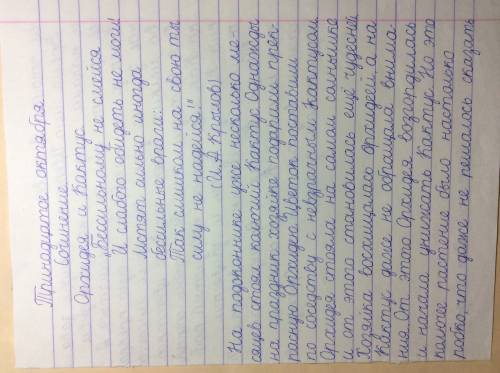 Тринадцатое октября
Сочинение
Орхидея и Кактус
"Бессильному не смейся
И слабого обидеть не моги!
Мстят сильно иногда
бессильные враги:
Так слишком на свою ты
силу не надейся"
(И. А. Крылов)
На подоконнике уже несколько ме-
сяцев стоял колючий Кактус. Однажды
на праздник хозяйке подарили прек-
расную Орхидею. Цветок поставили
по соседству с невзрачным Кактусом.
Орхидея стояла на самом солнышке
и от этого становилась ещё чудесней.
Хозяйка восхищалась Орхидеей, а на
Кактус даже не обращала внима-
ния. От этого Орхидея возгордилась
и начала унижать Кактус. Но это
колючее растение было настолько
робко, что даже не решалось сказать